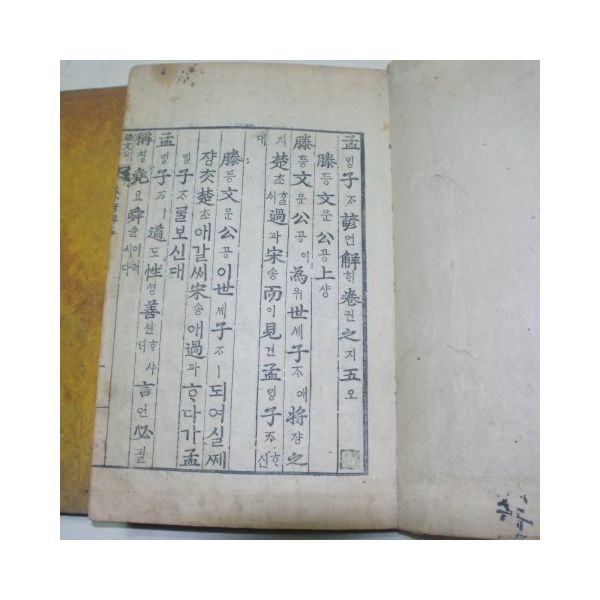 孟ᄆᆡᆼ子ᄌᆞ諺언解ᄒᆡ卷권之지五오
滕등文문公공上샹
滕등文문公공이為위世셰子ᄌᆞ애將쟝之
지楚초ᄒᆞᆯ시過과宋송而이見견孟ᄆᆡᆼ子ᄌᆞᄒᆞ신
대
滕등文문公공이世셰子ᄌᆞㅣ되여실ᄶᅦ
쟝ᄎᆞᆺ楚초애갈씨宋송애過과ᄒᆞ다가孟
ᄆᆡᆼ子ᄌᆞᄅᆞᆯ보신대
孟ᄆᆡᆼ子ᄌᆞㅣ道도性셩善션ᄒᆞ샤ᄃᆡ言언必필
稱칭堯요舜슌이러시다